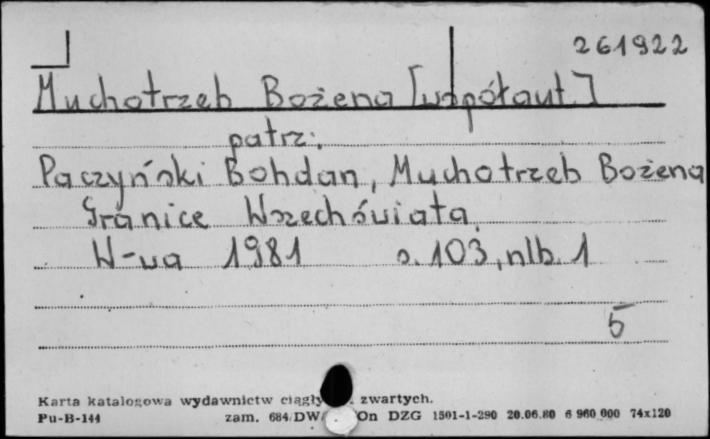 261922
Muchotrzeb Bożena [współaut.]
patrz:
Paczyński Bohdan, Muchotrzeb Bożena
Granice Wszechświata.
W-wa 1981 s. 103, nlb. 1
5
Karta katalogowa wydawnictw zwartych.
Pu-B-144 zam. 684/DW On DZG 1501-1-290 20.06.80 6 960 000 74x120